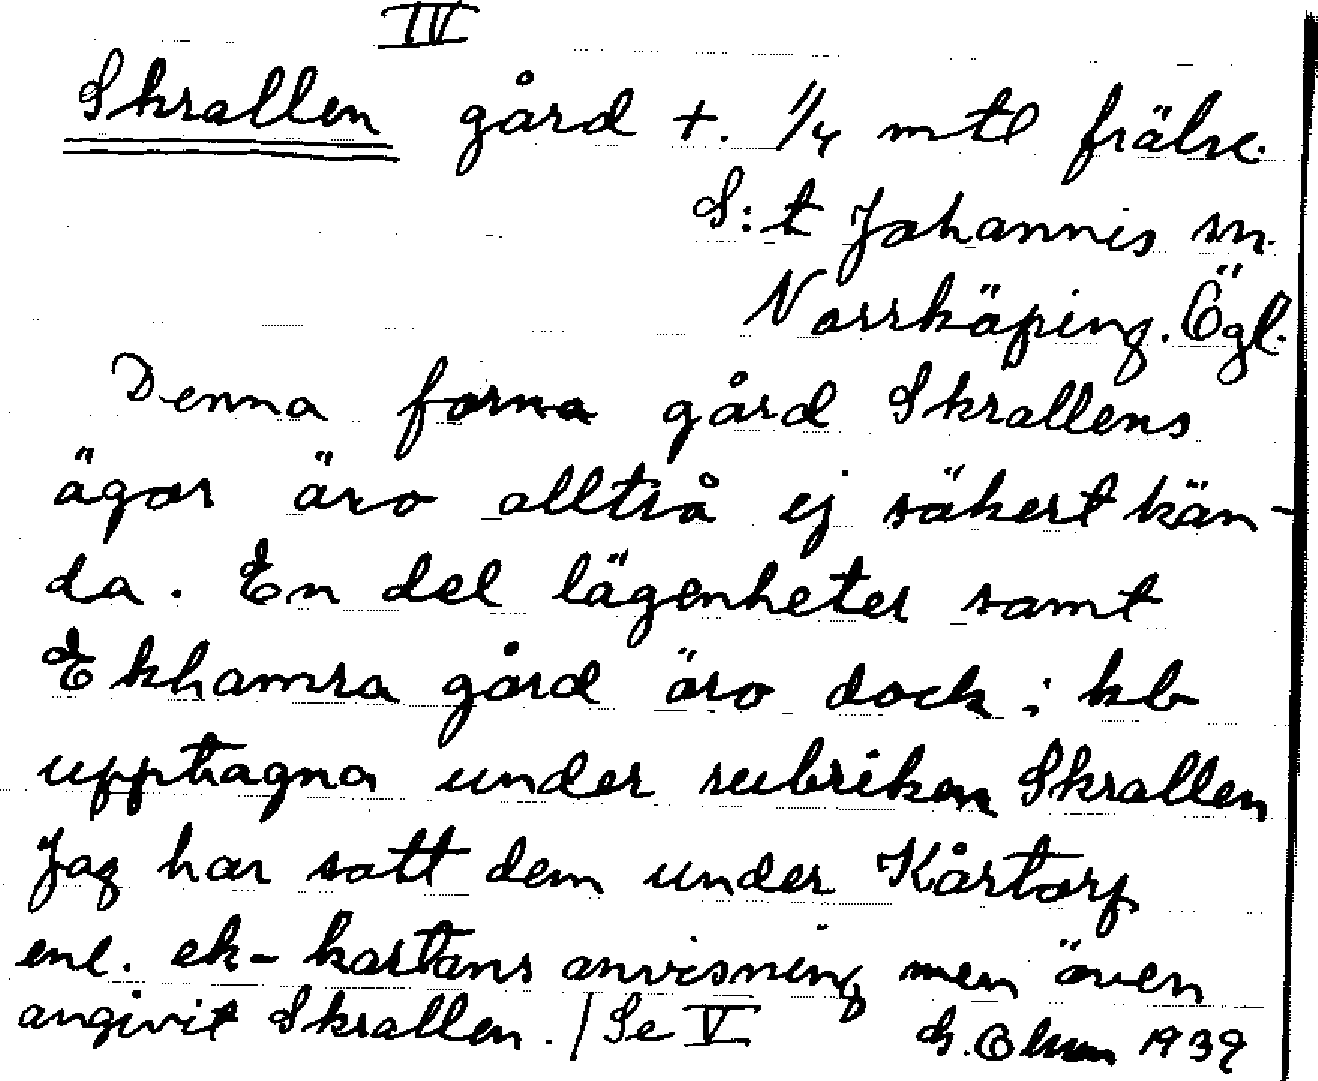 IV
Skrallen gård +. 1/4 mtl frälse.
S:t Johannis sn.
Norrköping. Ögl.
Denna forna gård Skrallens
ägor äro alltså ej säkert kän-
da. En del lägenheter samt
Ekhamra gård äro dock i kb
upptagna under rubriken Skrallen
Jag har satt dem under Kårtorp
enl. ek-kartans anvisning men även
angivit Skrallen. / Se V G. 1939